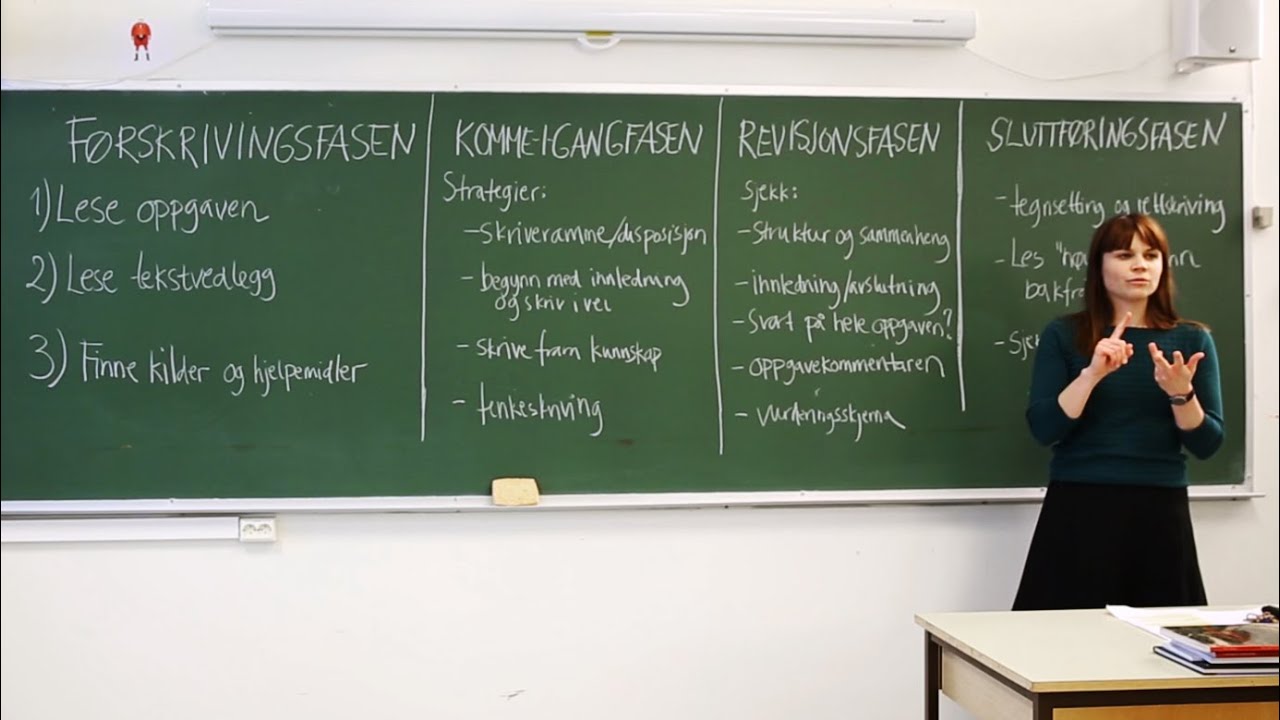 FØRSKRIVINGSFASEN
1) Lese oppgaven
2) Lese tekstvedlegg
3) Finne kilder og hjelpemidler
KOMME-I-GANGFASEN
Strategier:
- skriveramme/disposisjon
- begynn med innledning
og skriv i vei
- skrive fram kunnskap
- tenkeskriving
REVISJONSFASEN
Sjekk:
- Struktur og sammenheng
- innledning/avslutning
- Svart på hele oppgaven?
- oppgavekommentaren
- vurderingsskjema
SLUTTFØRINGSFASEN
- tegnsetting og rettskriving
- Les